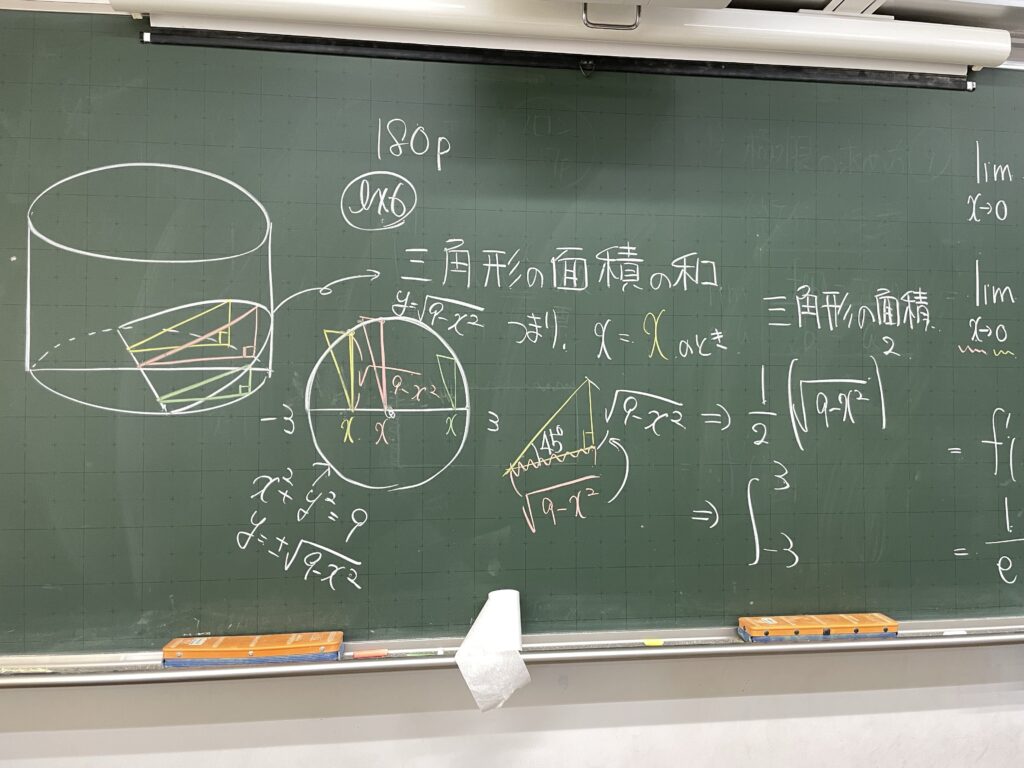 180p
ex6
三角形の面積の和
y=√9-x²
つまり、x=xのとき
√9-x²
-3
x
x
x
3
x²+y²=9
y=±√9-x²
45°
√9-x²
√9-x²
三角形の面積
⇒ 1/2 (√9-x²)²
⇒ ∫₋₃³
lim
x→0
lim
x→0
= f'(
= 1
e